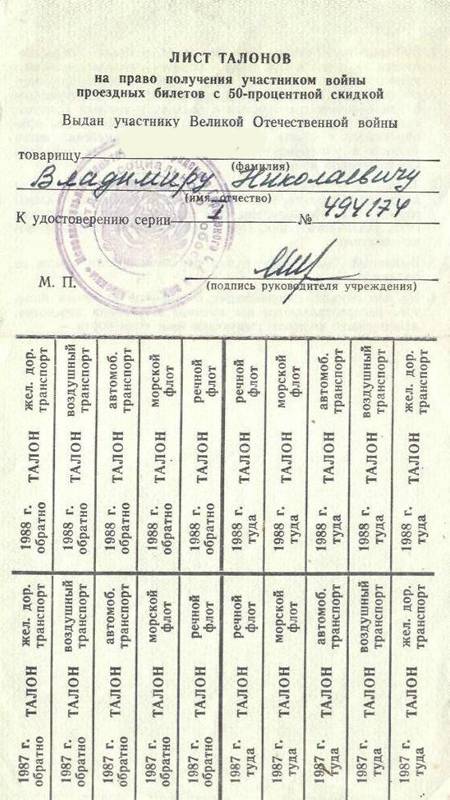 ЛИСТ ТАЛОНОВ
на право получения участником войны
проездных билетов с 50-процентной скидкой
Выдан участнику Великой Отечественной войны
товарищу
(фамилия)
Владимиру Николаевичу
(имя, отчество)
К удостоверению серии 1 № 494174
М. П.
(подпись руководителя учреждения)
1988 г. ТАЛОН жел. дор.
обратно транспорт
1988 г. ТАЛОН воздушный
обратно транспорт
1988 г. ТАЛОН автомоб.
обратно транспорт
1988 г. ТАЛОН морской
обратно флот
1988 г. ТАЛОН речной
обратно флот
1988 г. ТАЛОН речной
туда флот
1988 г. ТАЛОН морской
туда флот
1988 г. ТАЛОН автомоб.
туда транспорт
1988 г. ТАЛОН воздушный
туда транспорт
1988 г. ТАЛОН жел. дор.
туда транспорт
1987 г. ТАЛОН жел. дор.
обратно транспорт
1987 г. ТАЛОН воздушный
обратно транспорт
1987 г. ТАЛОН автомоб.
обратно транспорт
1987 г. ТАЛОН морской
обратно флот
1987 г. ТАЛОН речной
обратно флот
1987 г. ТАЛОН речной
туда флот
1987 г. ТАЛОН морской
туда флот
1987 г. ТАЛОН автомоб.
туда транспорт
1987 г. ТАЛОН воздушный
туда транспорт
1987 г. ТАЛОН жел. дор.
туда транспорт